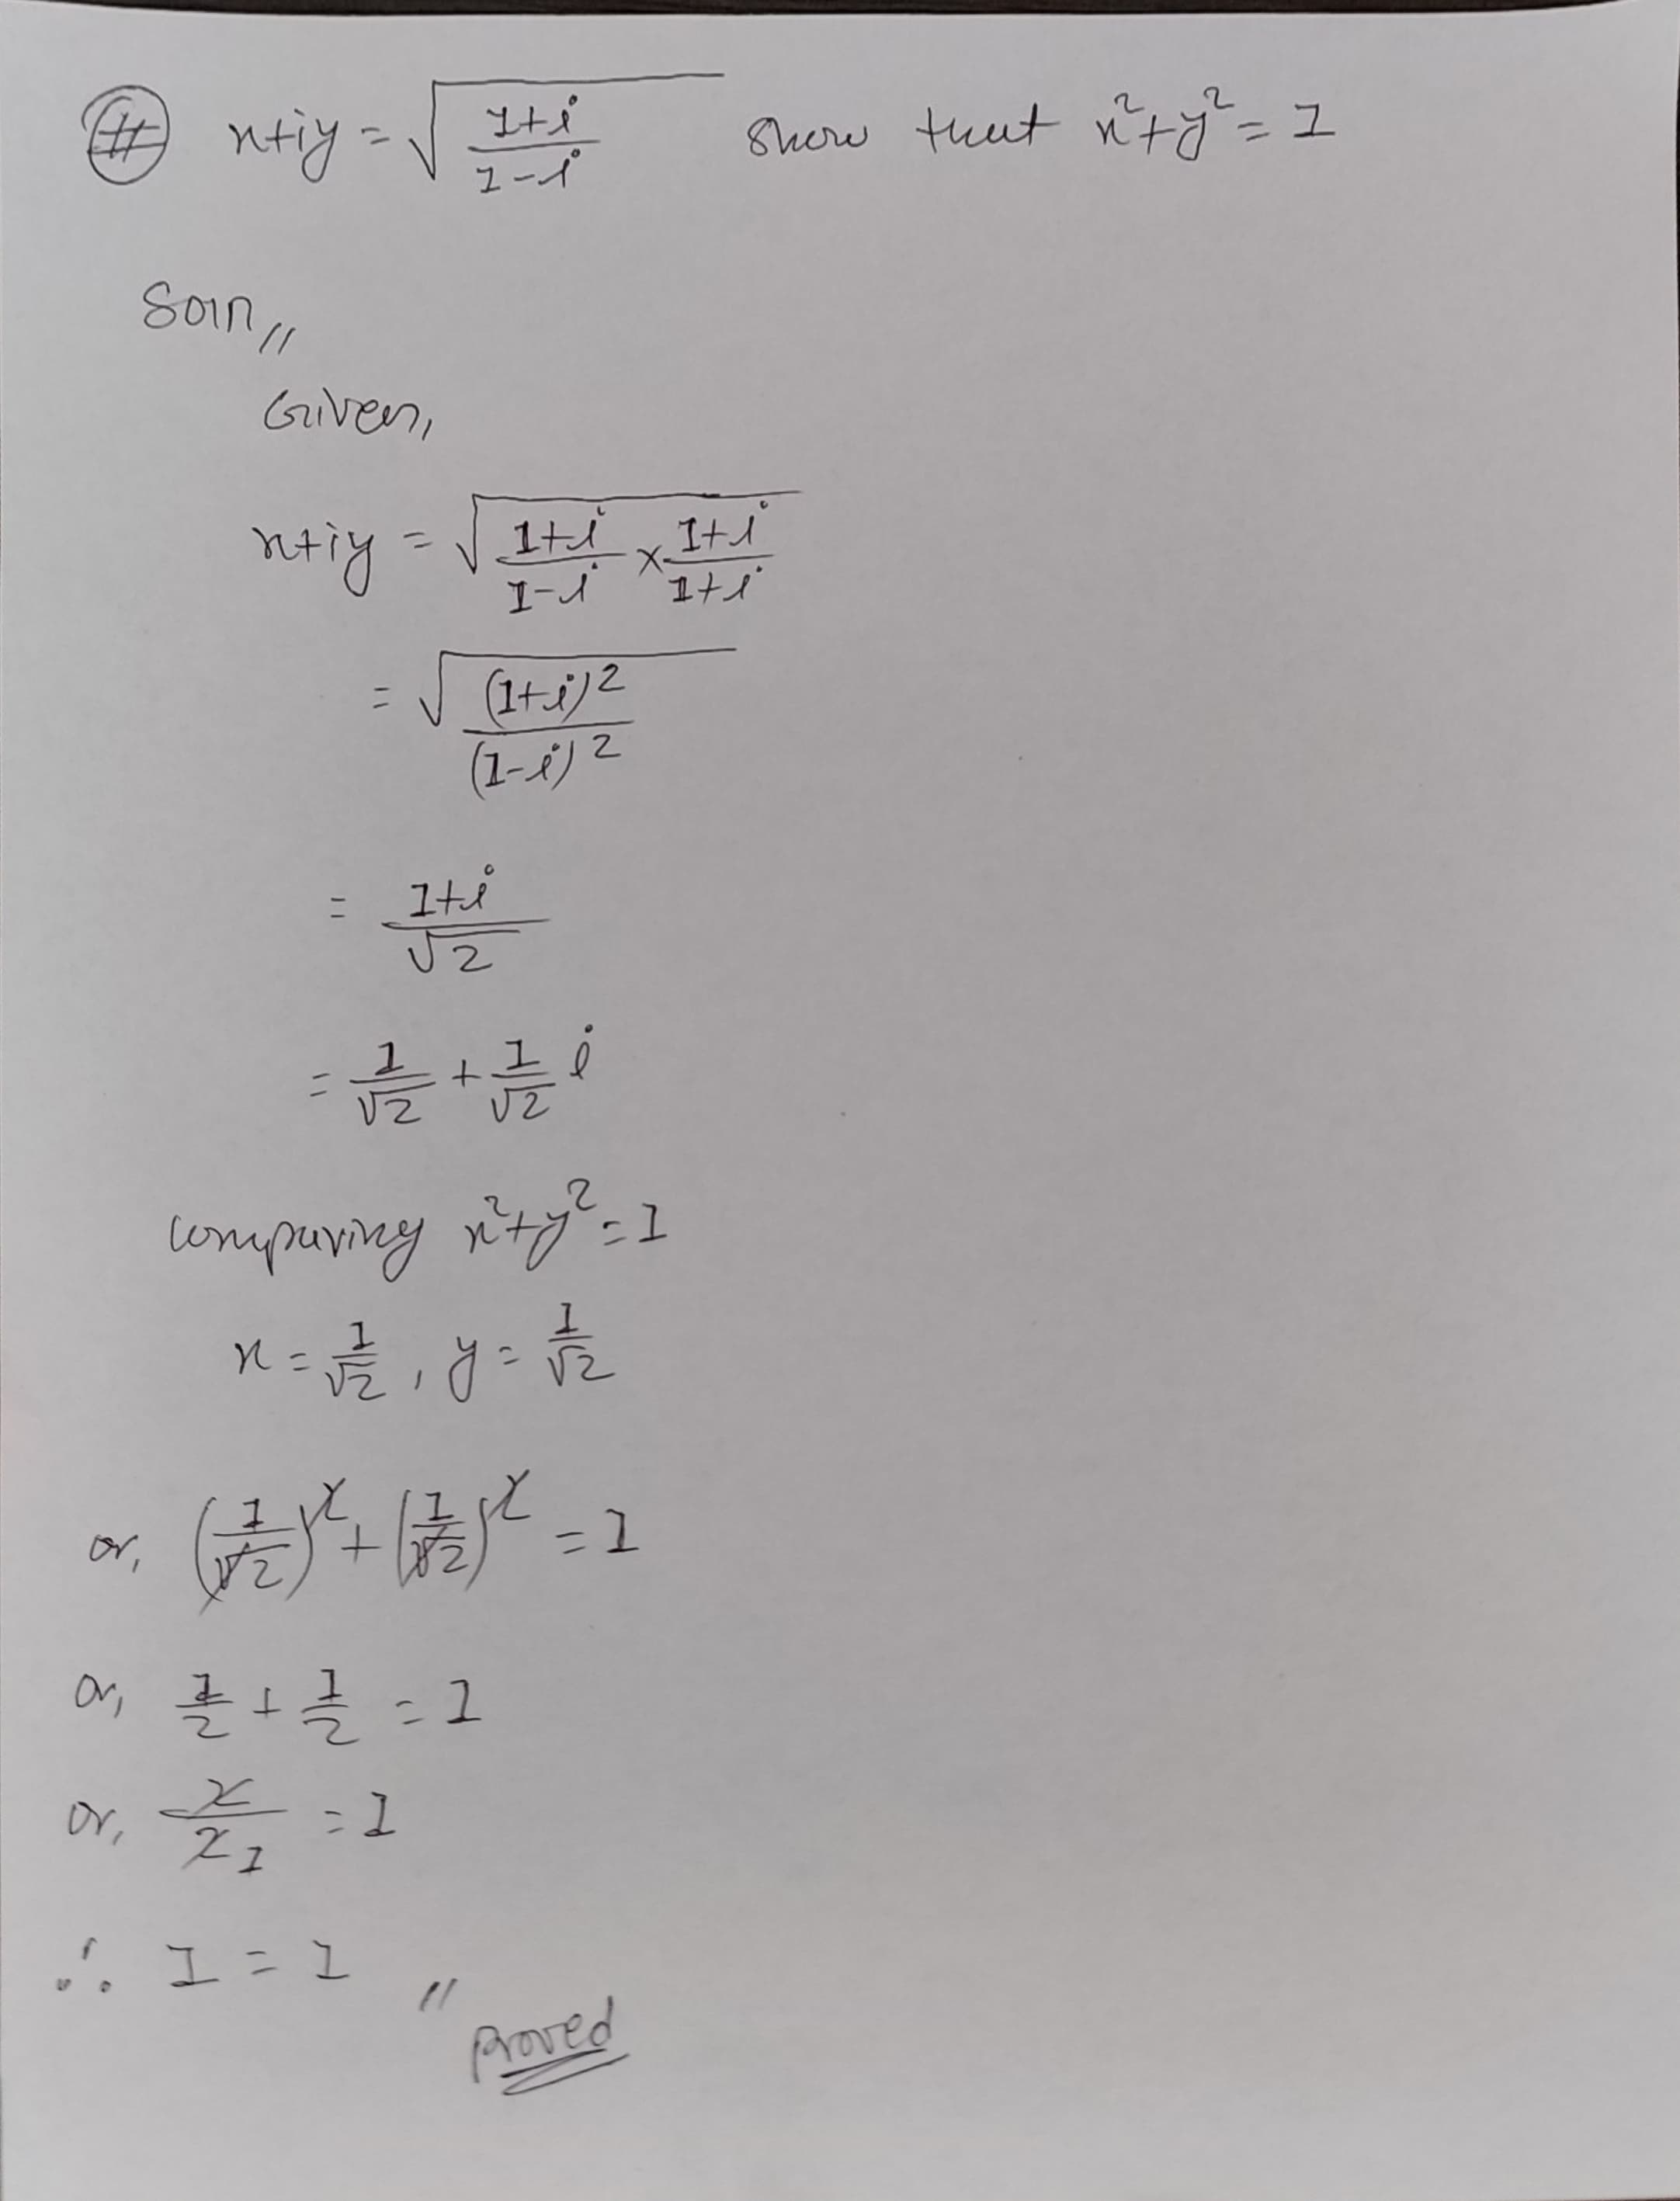 # x+iy = √((1+i)/(1-i)) show that x²+y² = 1
Soln,,
Given,
x+iy = √((1+i)/(1-i) × (1+i)/(1+i))
= √((1+i)²/(1-i)²)
= (1+i)/√2
= 1/√2 + 1/√2 i
comparing x²+y² = 1
x = 1/√2 , y = 1/√2
or, (1/√2)² + (1/√2)² = 1
or, 1/2 + 1/2 = 1
or, 2/2 1 = 1
∴ 1 = 1 ,,
proved